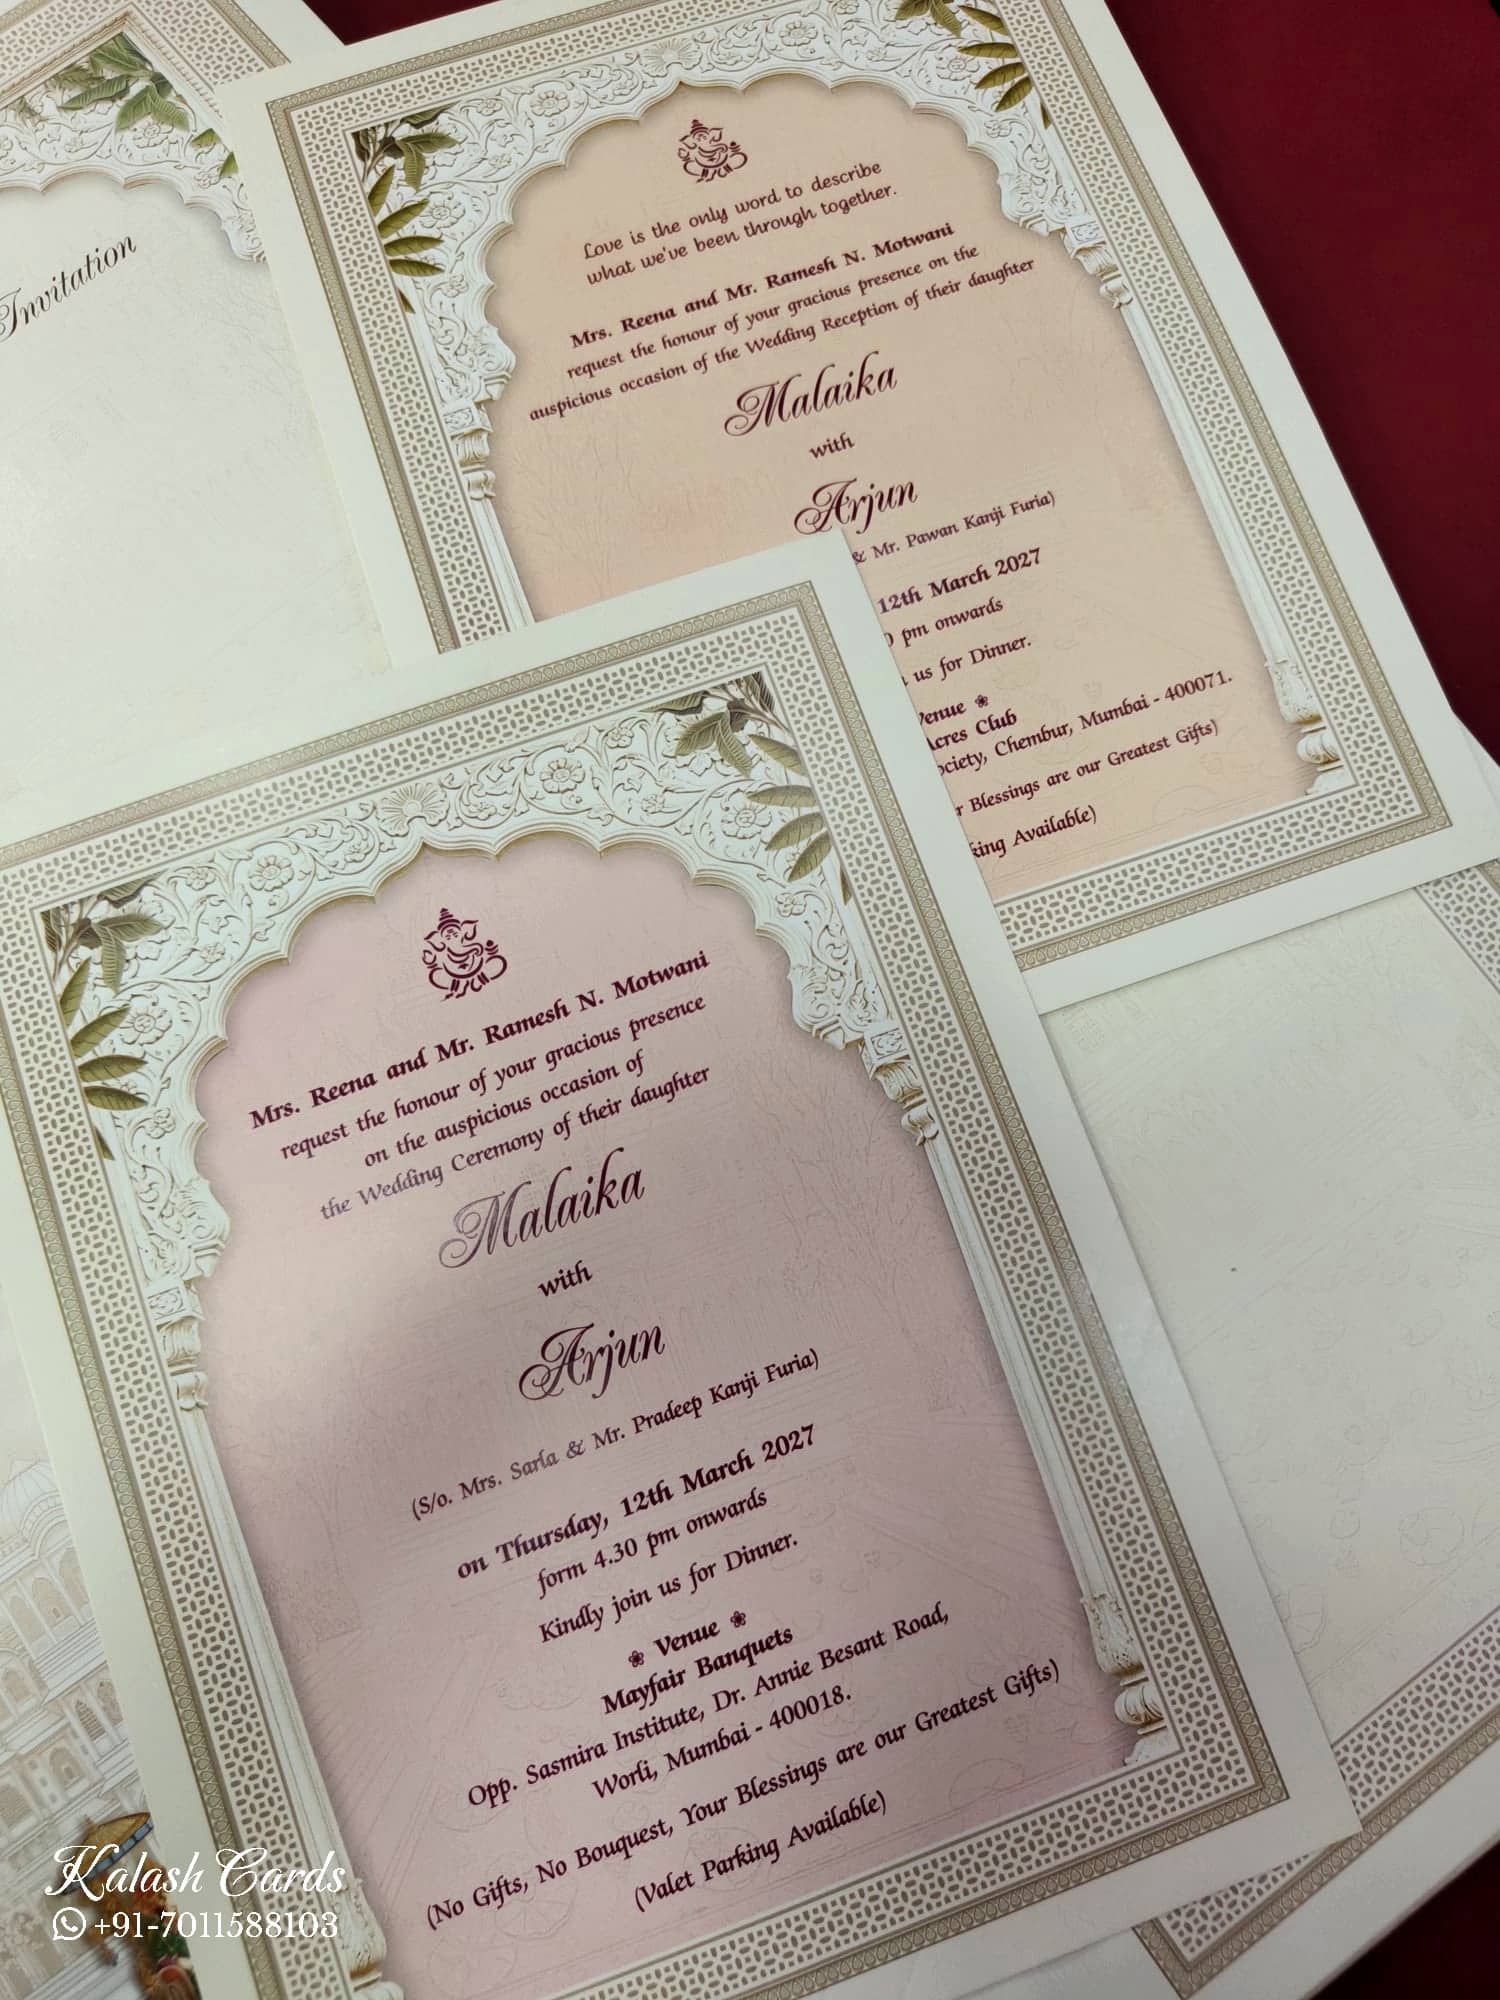 Invitation
Love is the only word to describe
what we've been through together.
Mrs. Reena and Mr. Ramesh N. Motwani
request the honour of your gracious presence on the
auspicious occasion of the Wedding Reception of their daughter
Malaika
with
Arjun
& Mr. Pawan Kanji Furia)
12th March 2027
pm onwards
us for Dinner.
Acres Club
Chembur, Mumbai - 400071.
Blessings are our Greatest Gifts)
Available)
Mrs. Reena and Mr. Ramesh N. Motwani
request the honour of your gracious presence
on the auspicious occasion of
the Wedding Ceremony of their daughter
Malaika
with
Arjun
(S/o. Mrs. Sarla & Mr. Pradeep Kanji Furia)
on Thursday, 12th March 2027
form 4.30 pm onwards
Kindly join us for Dinner.
Venue
Mayfair Banquets
Opp. Sasmira Institute, Dr. Annie Besant Road,
Worli, Mumbai - 400018.
(No Gifts, No Bouquest, Your Blessings are our Greatest Gifts)
(Valet Parking Available)
Kalash Cards
+91-7011588103